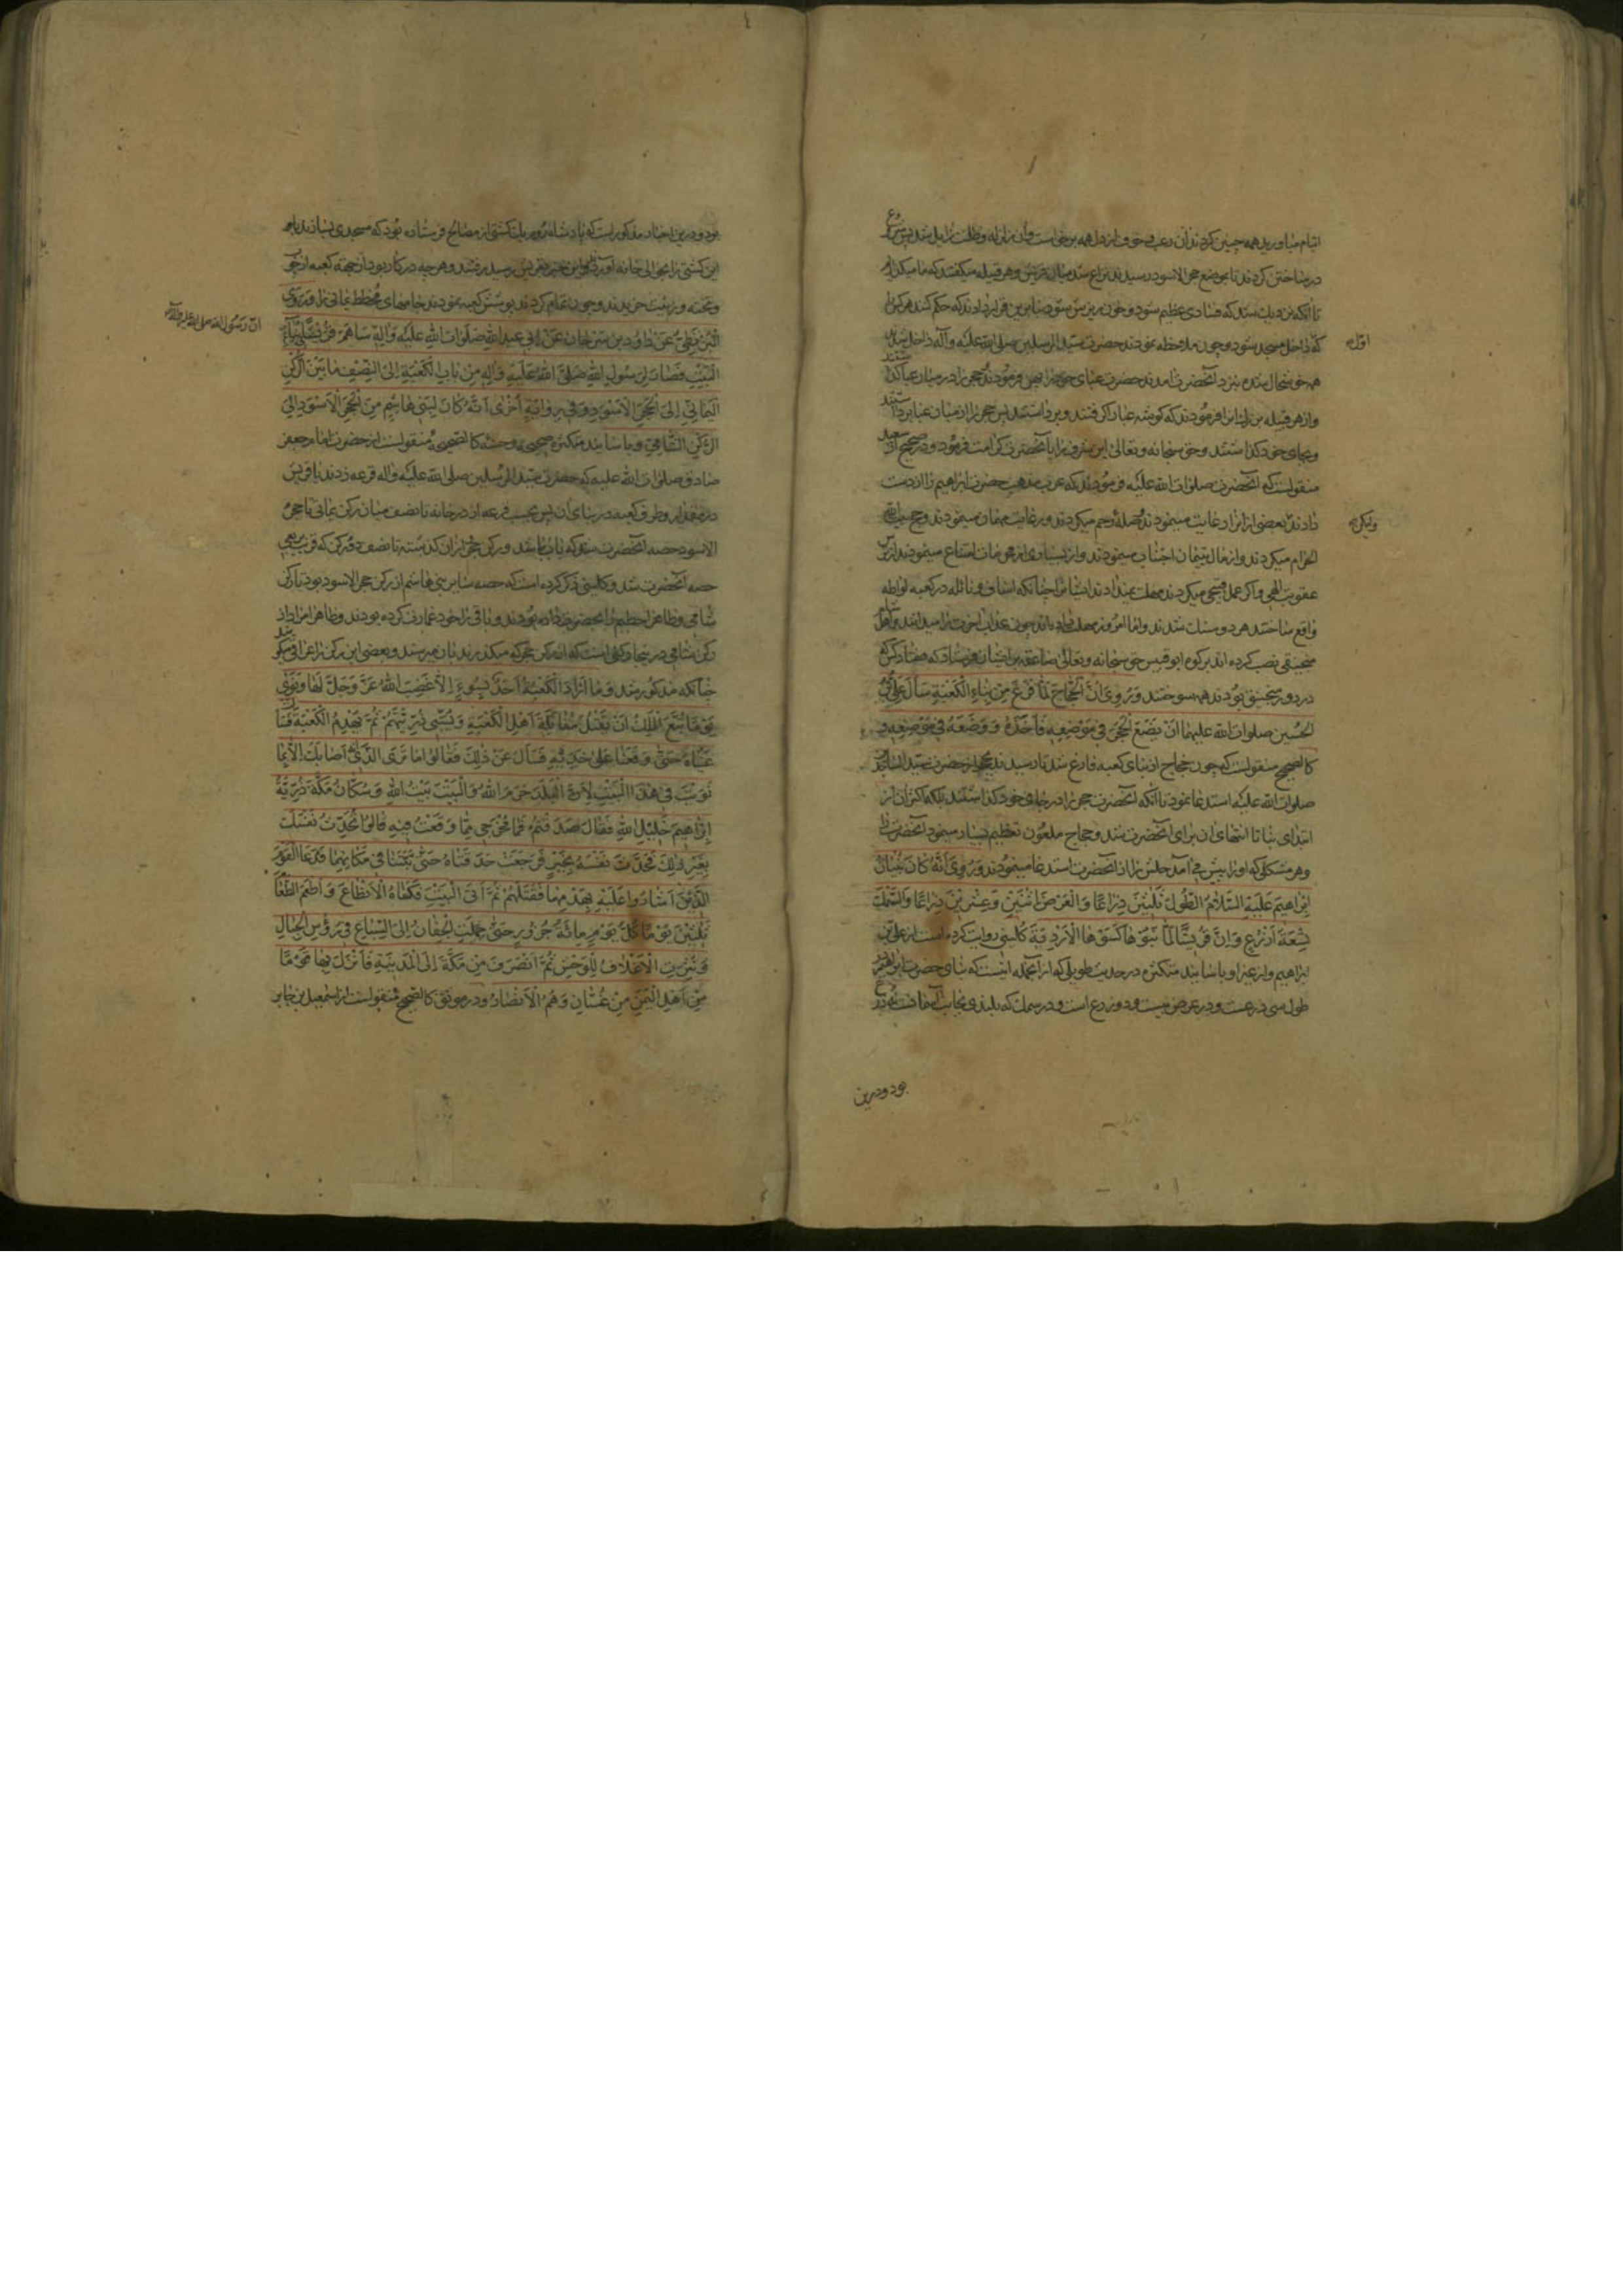 ایشان میاورید همه چنین کردند آن رعب و خوف از دل همه برخاست و آن زلزله و ظلمت زایل شد پس شروع
در ساختن کردند تا بموضع حجر الاسود رسیدند نزاع شد میان قریش و هر قبیله میگفتند که ما میگذاریم
تا آنکه نزدیک شد که فسادی عظیم شود و خون ریزش شود بنابرین قرار دادند که حکم کنند هر کس را
اول
که داخل مسجد شود و چون ملاحظه نمودند حضرت سید المرسلین صلی الله علیه و آله داخل شدند
همه خوشحال شده بنزد آنحضرت آمدند حضرت عبای خود را پهن فرمودند و حجر را در میان عبا گذاشتند
و از هر قبیله بزرگ ایشان را فرمودند که گوشه عبا را گرفتند و برداشتند پس حجر را از میان عبا برداشتند
و بجای خود گذاشتند و حق سبحانه و تعالی این شرف را بآنحضرت کرامت فرمود و در صحیح از سعید
منقولست که آنحضرت صلوات الله علیه فرمودند که عرب مذهب حضرت ابراهیم را از دست
ولیکن
دادند بعضی از آن را رعایت مینمودند و صله رحم میکردند و رعایت مهمان مینمودند و حج بیت الله
الحرام میکردند و از مال یتیمان اجتناب مینمودند و از بسیاری از محرمات امتناع مینمودند از ترس
عقوبت الهی و اگر عمل قبیحی میکردند مهلت نمیدادند ایشان را چنانکه اساف و نائله در کعبه لواطه
واقع ساختند هر دو سنگ شدند و اما امروز مهلت داده‌اند چون عذاب آخرت را میدانند و اهل شام
منجنیقی نصب کرده اند بر کوه ابو قبیس حق سبحانه و تعالی صاعقه بر ایشان فرستاد که هفتاد کس که
در دور منجنیق بودند همه سوختند وَرُوِیَ اَنَّ الْحَجَّاجَ لَمَّا فَرَغَ مِنْ بِنَاءِ الْکَعْبَةِ سَأَلَ عَلِیَّ بْنَ
الْحُسَیْنِ صلوات الله علیهما اَنْ یَضَعَ الْحَجَرَ فِی مَوْضِعِهِ فَاَخَذَهُ وَوَضَعَهُ فِی مَوْضِعِهِ در
کالصحیح منقولست که چون حجاج از بنای کعبه فارغ شد تا رسیدند بحجر از حضرت سید الساجدین
صلوات الله علیه استدعا نمود تا آنکه آنحضرت حجر را در جای خود گذاشتند بلکه اکثر آن از
ابتدای بنا تا انتهای آن برای آنحضرت شد و حجاج ملعون تعظیم بسیار مینمود آنحضرت را
و هر مشکلی که او را پیش می آمد حلش را از آنحضرت استدعا مینمودند وَرُوِیَ اَنَّهُ کَانَ بُنْیَانُ
اِبْرَاهِیمَ عَلَیْهِ السَّلَامُ الطُّولُ ثَلٰثِینَ ذِرَاعًا وَالْعَرْضُ اثْنَیْنِ وَعِشْرِینَ ذِرَاعًا وَالسَّمْكُ
تِسْعَةَ اَذْرُعٍ وَاِنَّ قُرَیْشًا لَمَّا بَنَوْهَا کَسَوْهَا الْاَرْدِیَةَ کلینی روایت کرده است از علی بن
ابراهیم و از غیر او باسانید متکثره در حدیث طویلی که از آنجمله اینست که بنای حضرت ابراهیم
طول سی ذرعست و در عرض بیست و دو ذرع است و در سمك که بلندی بجانب آسمانست نه ذرع
بود و درین
بود و درین اخبار مذکور است که پادشاه روم یك کشتی از مصالح فرستاده بود که مسجدی بسازند باد
این کشتی را بحوالی خانه آورد و این خبر بقریش رسید رفتند و هر چه در کار بود از جهة کعبه از چوب
و تخته و زینت خریدند و چون تمام کردند پوشش کعبه نمودند جامهای مخطط یمانی را وَرَوَی
اَنَّ رَسُولَ الله صلی الله علیه و آله
الْبَزَنْطِیُّ عَنْ دَاوُدَ بْنِ سِرْحَانَ عَنْ اَبِی عَبْدِ اللهِ صَلَوَاتُ اللهِ عَلَیْهِ وَآلِهِ سَاهَمَ قُرَیْشًا فِی بِنَاءِ
الْبَیْتِ فَصَارَ لِرَسُولِ اللهِ صَلَّی اللهُ عَلَیْهِ وَآلِهِ مِنْ بَابِ الْکَعْبَةِ اِلَی النِّصْفِ مَا بَیْنَ الرُّکْنِ
الْیَمَانِیِّ اِلَی الْحَجَرِ الْاَسْوَدِ وَفِی رِوَایَةٍ اُخْرَی اَنَّهُ کَانَ لِبَنِی هَاشِمٍ مِنَ الْحَجَرِ الْاَسْوَدِ اِلَی
الرُّکْنِ الشَّامِیِّ و باسانید متکثره صحیحه و حسنه کالصحیحه منقولست از حضرت امام جعفر
صادق صلوات الله علیه که حضرت سید المرسلین صلی الله علیه و آله قرعه زدند با قریش
در مقدار و طرف کعبه در بنای آن پس بحسب قرعه از در خانه تا نصف میان رکن یمانی تا حجر
الاسود حصه آنحضرت شد که باب باشد و رکن حجر از آن گذشته تا نصف دو رکن که قریب بربعی
حصه آنحضرت شد و کلینی ذکر کرده است که حصه سایر بنی هاشم از رکن حجر الاسود بود تا رکن
شامی و ظاهرا حطیم را بآنحضرت داده بودند و باقی را خود عمارت کرده بودند و ظاهرا مراد از
رکن شامی در اینجا رکنی است که از رکن حجر که میگذرند بآن میرسند و بعضی این رکن را عراقی میگویند
چنانکه مذکور شد وَمَا اَرَادَ الْکَعْبَةَ اَحَدٌ بِسُوءٍ اِلَّا غَضِبَ اللهُ عَزَّ وَجَلَّ لَهَا وَنَوَی
یَوْمًا تُبَّعٌ الْمَلِكُ اَنْ یَقْتُلَ مُقَاتِلَةَ اَهْلِ الْکَعْبَةِ وَیَسْبِیَ ذُرِّیَّتَهُمْ ثُمَّ یَهْدِمَ الْکَعْبَةَ فَسَالَتْ
عَیْنَاهُ حَتَّی وَقَعَتَا عَلَی خَدَّیْهِ فَسَأَلَ عَنْ ذٰلِكَ فَقَالُوا مَا نَرَی الَّذِی اَصَابَكَ اِلَّا بِمَا
نَوَیْتَ فِی هٰذَا الْبَیْتِ لِاَنَّ الْبَلَدَ حَرَمُ اللهِ وَالْبَیْتَ بَیْتُ اللهِ وَسُکَّانُ مَکَّةَ ذُرِّیَّةُ
اِبْرَاهِیمَ خَلِیلِ اللهِ فَقَالَ صَدَقْتُمْ فَمَا مَخْرَجِی مِمَّا وَقَعْتُ فِیهِ قَالُوا تُحَدِّثُ نَفْسَكَ
بِغَیْرِ ذٰلِكَ فَحَدَّثَ نَفْسَهُ بِخَیْرٍ فَرَجَعَتْ حَدَقَتَاهُ حَتَّی ثَبَتَتَا فِی مَکَانِهِمَا فَدَعَا الْقَوْمَ
الَّذِینَ اَشَارُوا عَلَیْهِ بِهَدْمِهَا فَقَتَلَهُمْ ثُمَّ اَتَی الْبَیْتَ فَکَسَاهُ الْاَنْطَاعَ وَاَطْعَمَ الطَّعَامَ
ثَلٰثِینَ یَوْمًا کُلَّ یَوْمٍ مِائَةَ جَزُورٍ حَتَّی حُمِلَتِ الْجِفَانُ اِلَی السِّبَاعِ فِی رُؤُسِ الْجِبَالِ
وَنُثِرَتِ الْاَعْلَافُ لِلْوُحُشِ ثُمَّ انْصَرَفَ مِنْ مَکَّةَ اِلَی الْمَدِینَةِ فَاَنْزَلَ بِهَا قَوْمًا
مِنْ اَهْلِ الْیَمَنِ مِنْ غَسَّانَ وَهُمُ الْاَنْصَارُ و در موثق کالصحیح منقولست از اسمعیل بن جابر